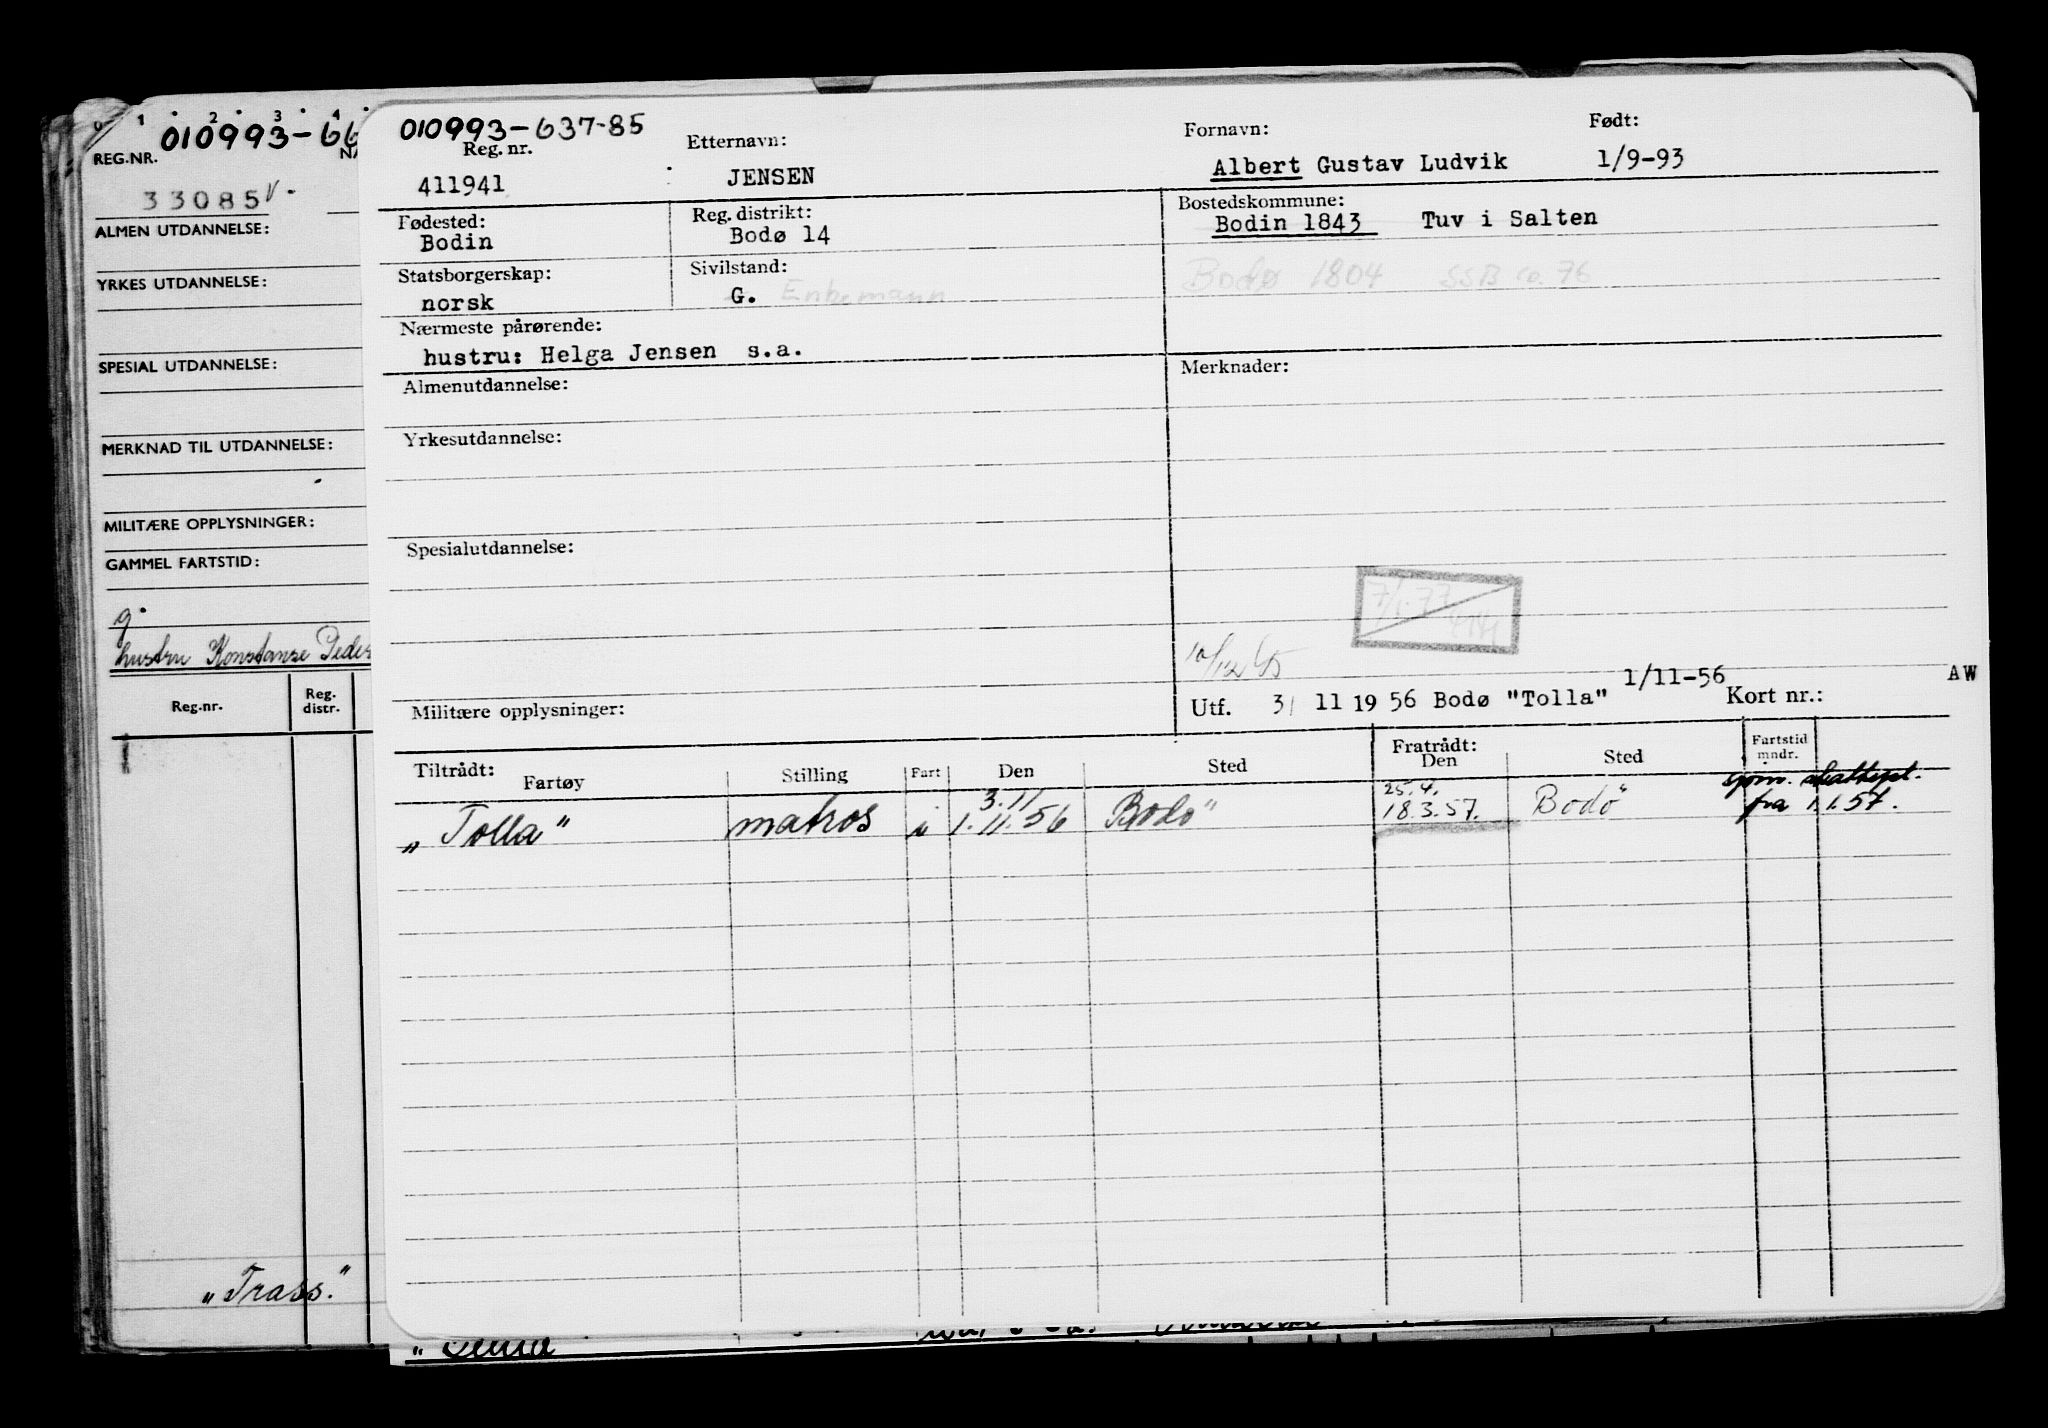 0 1 2 3 4
010993-66
REG.NR.
NA
33085
ALMEN UTDANNELSE:
YRKES UTDANNELSE:
SPESIAL UTDANNELSE:
MERKNAD TIL UTDANNELSE:
MILITÆRE OPPLYSNINGER:
GAMMEL FARTSTID:
g.
hustru Konstanse Peders
Reg.nr. Reg. distr.
„Trass."
010993-637-85
Reg. nr. Etternavn: Fornavn: Født:
411941 JENSEN Albert Gustav Ludvik 1/9-93
Fødested: Reg. distrikt: Bostedskommune:
Bodin Bodø 14 Bodin 1843 Tuv i Salten
Statsborgerskap: Sivilstand: Bodø 1804 SSB co. 76
norsk G. Enkemann
Nærmeste pårørende:
hustru: Helga Jensen s.a.
Almenutdannelse: Merknader:
Yrkesutdannelse:
Spesialutdannelse:
7/1.77
1/11-56 AW
Militære opplysninger: Utf. 3/ 11 19 56 Bodø "Tolla" Kort nr.:
Tiltrådt: Fratrådt:
Fartøy Stilling Fart Den Sted Den Sted Fartstid mndr.
3.11 25.4. gjsn.
„Tolla" matros i 1.11.56 Bodø 18.3.57. Bodø fra 1.1.57.